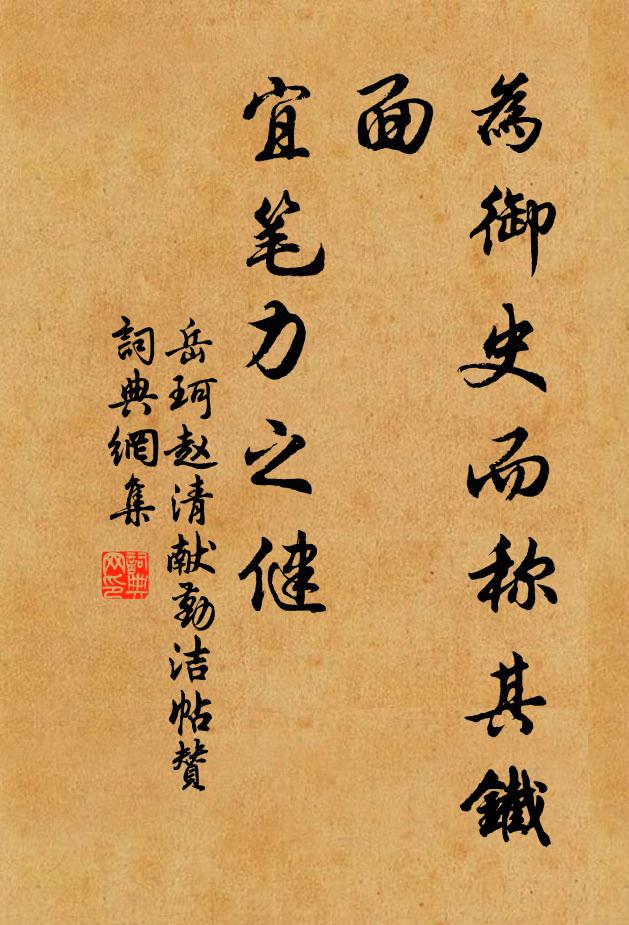 為御史而称其鐵
面
宜笔力之健
岳珂赵清献勤洁帖赞
詞典網集
詞典网印